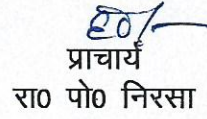 ह0/-
प्राचार्य
रा0 पो0 निरसा